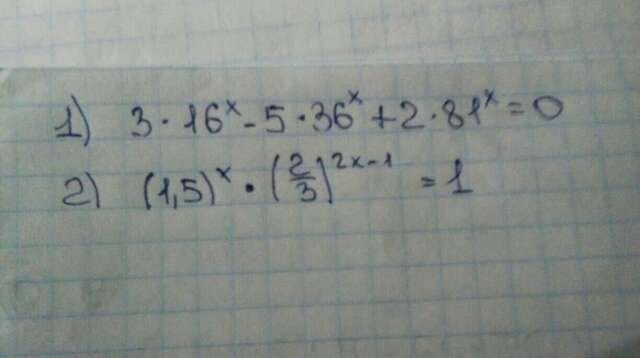 1) 3 · 16^x - 5 · 36^x + 2 · 81^x = 0
2) (1,5)^x · (2/3)^{2x-1} = 1